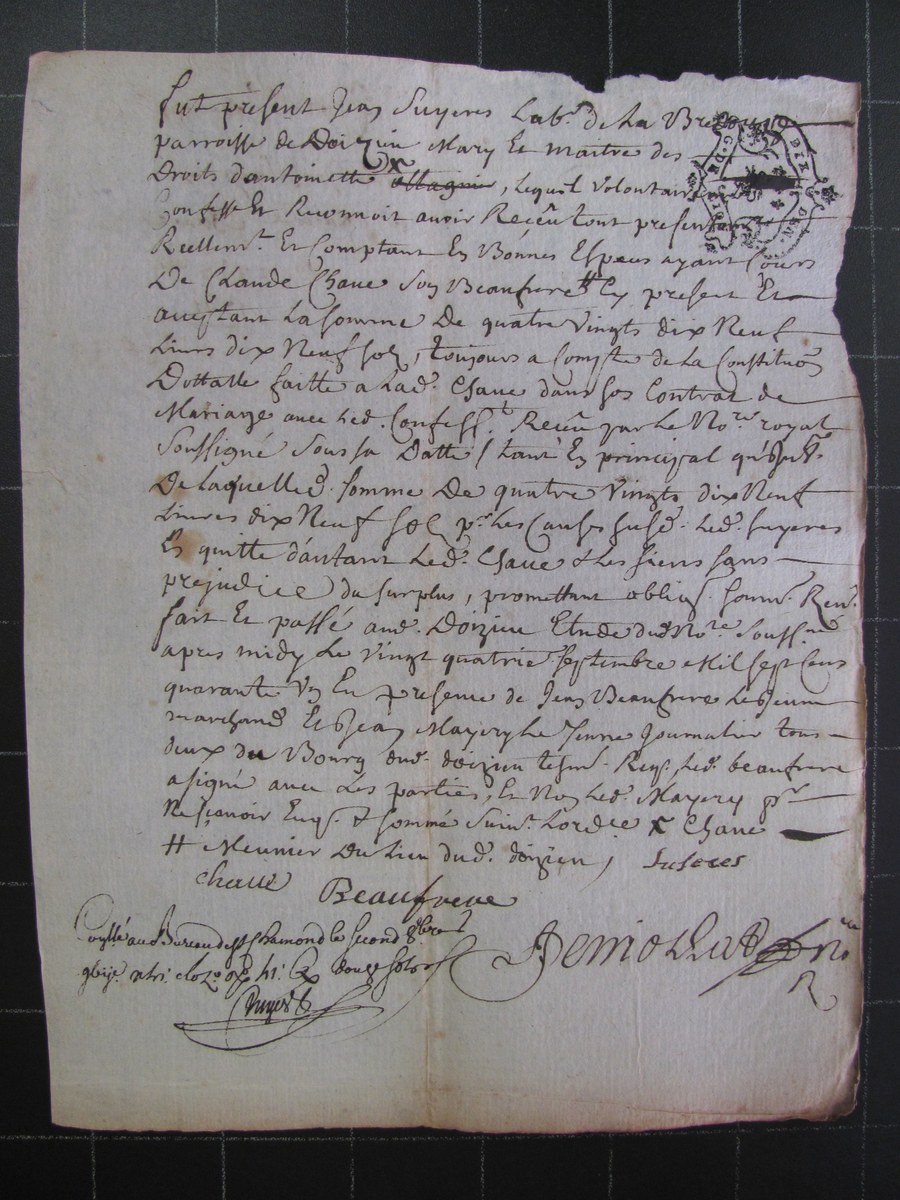 fut présent Jean Suyeres Lab.r de La
parroisse de Doizieu Mary Et maitre des
Droits dantoinette x, lequel volontairem
Confesse Et Reconnoit avoir Receu tout presentem
Reellem.t Et Comptant En Bonnes Especes ayant Cours
De Claude Chave Son Beaufrere # Cy présent Et
aceptant La somme De quatre vingts dix Neuf
Livres dix Neuf solz, toujours a Compte de La Constitution
Dottalle faitte a Lad. Chave dans son Contrat de
Mariage avec Led. Confess.t Receu par Le No.re royal
Soussigné Sous sa Datte / tant En principal
De Laquelle d. somme De quatre vingts dix Neuf
Livres dix Neuf sol p.r Les Causes susd. Led. Suyeres
En quitte d'autant Led. Chave & Les siens sans
prejudice Du surplus, promettant oblig. soum. Ren.
fait Et passé aud. Doizieu Etude dud No.re Souss.né
apres midy Le vingt quatrie Septembre Mil sept Cens
quarante Un En présence de Jean Beaufrere Le Jeune
marchand Et Jean Mayery Le Jeune Journalier tous
deux du Bourg dud. doizieu tesm. Req. Led. beaufrere
a signé avec Les parties, Et Non Led. Mayery p.r
Ne Sçavoir Enq. & sommé Suiv.t Lord.ce x Chave
# Meunier Du Lieu dud. doizieu, Suseres
chave Beaufrere
au Bureau de St Chamond le second 8.bre
No.re